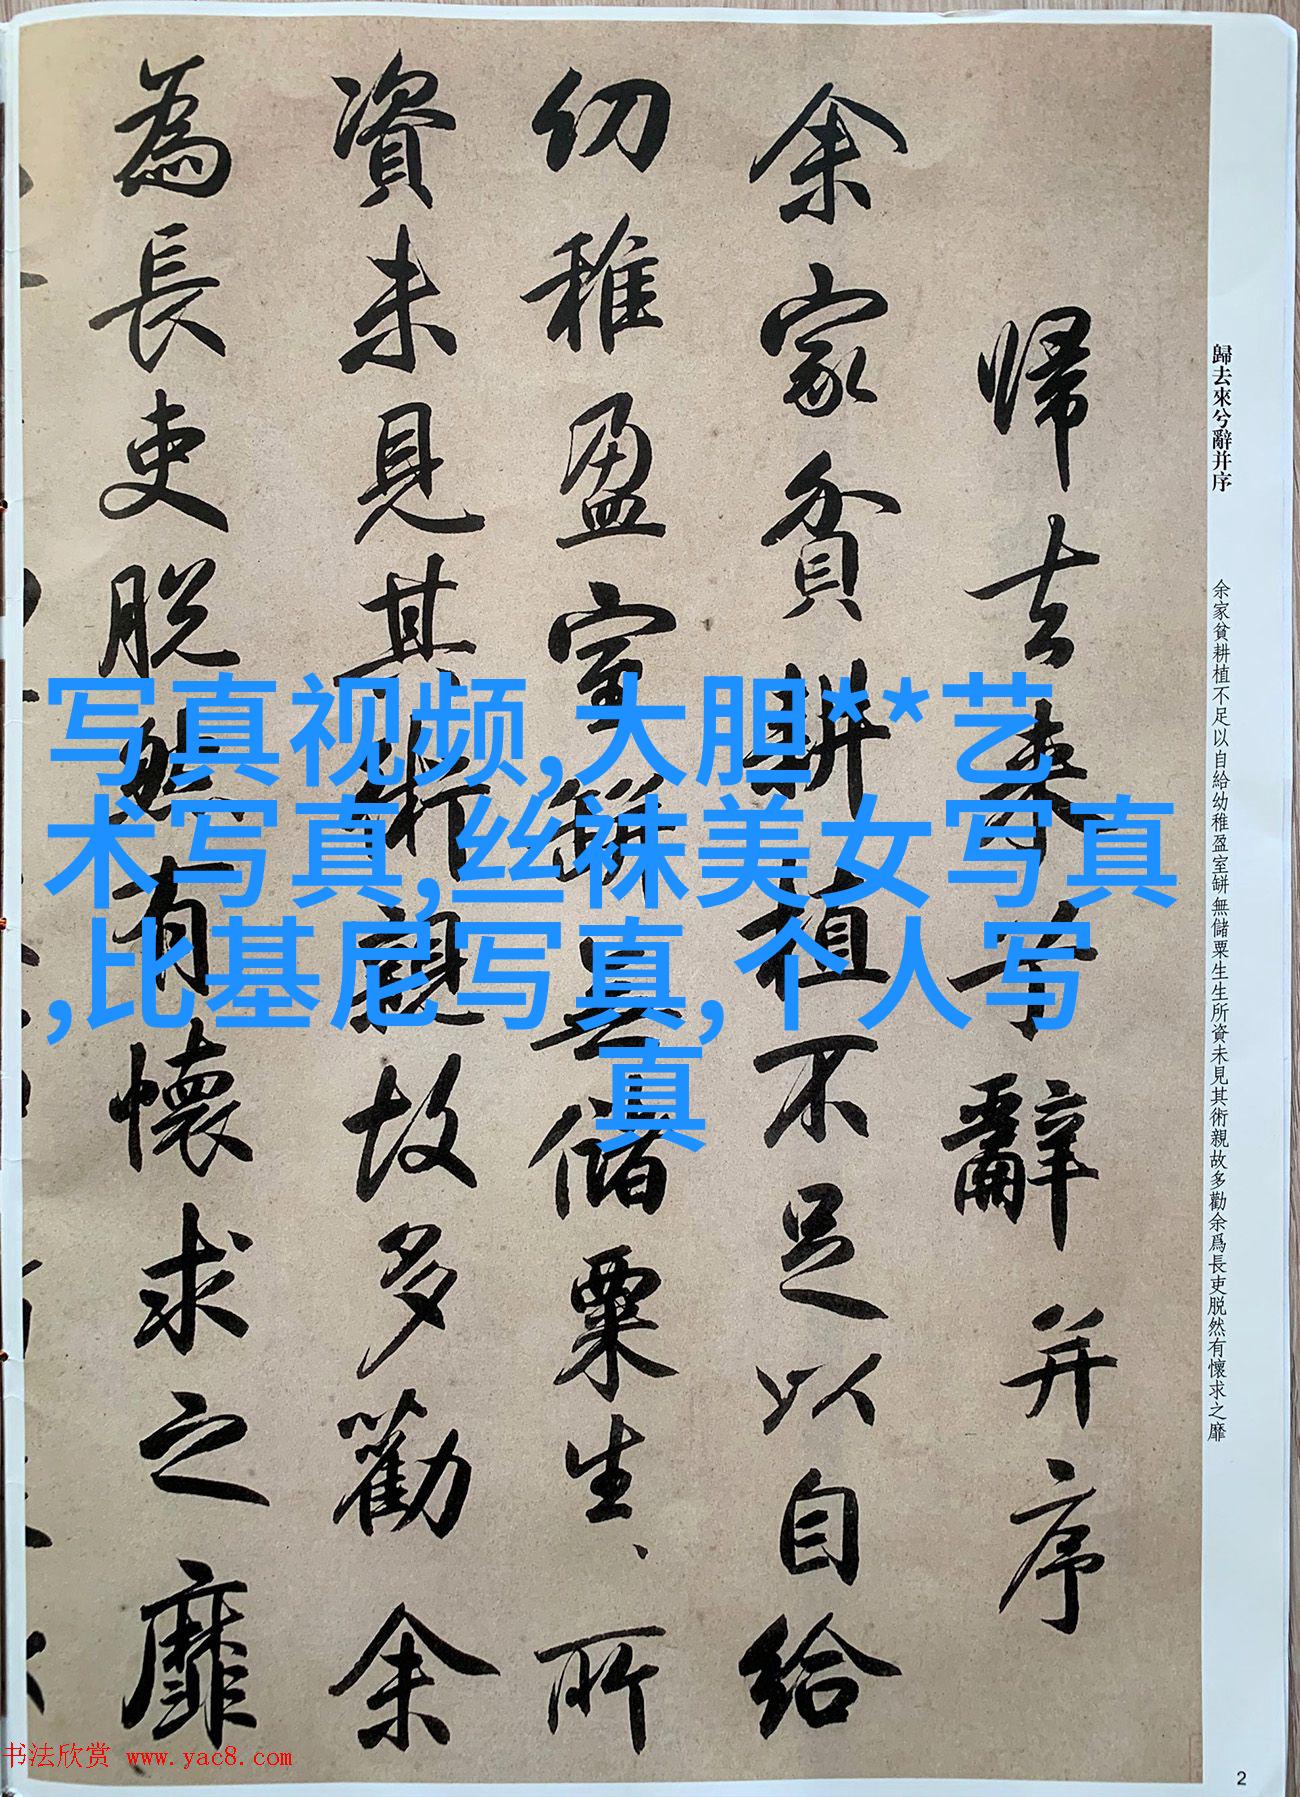 歸去來兮辭并序
余家貧耕植不足以自給幼稚盈室缾無儲粟生生所資未見其術親故多勸余爲長吏脱然有懷求之靡
帰去来兮辭并序
余家貧耕植不足以自給
幼稚盈室缾無儲粟生、所
資未見其術親故多勸余
為長吏脱然有懷求之靡
写真视频,大胆**艺
术写真,丝袜美女写真
,比基尼写真,个人写
真
书法欣赏 www.yac8.com
2